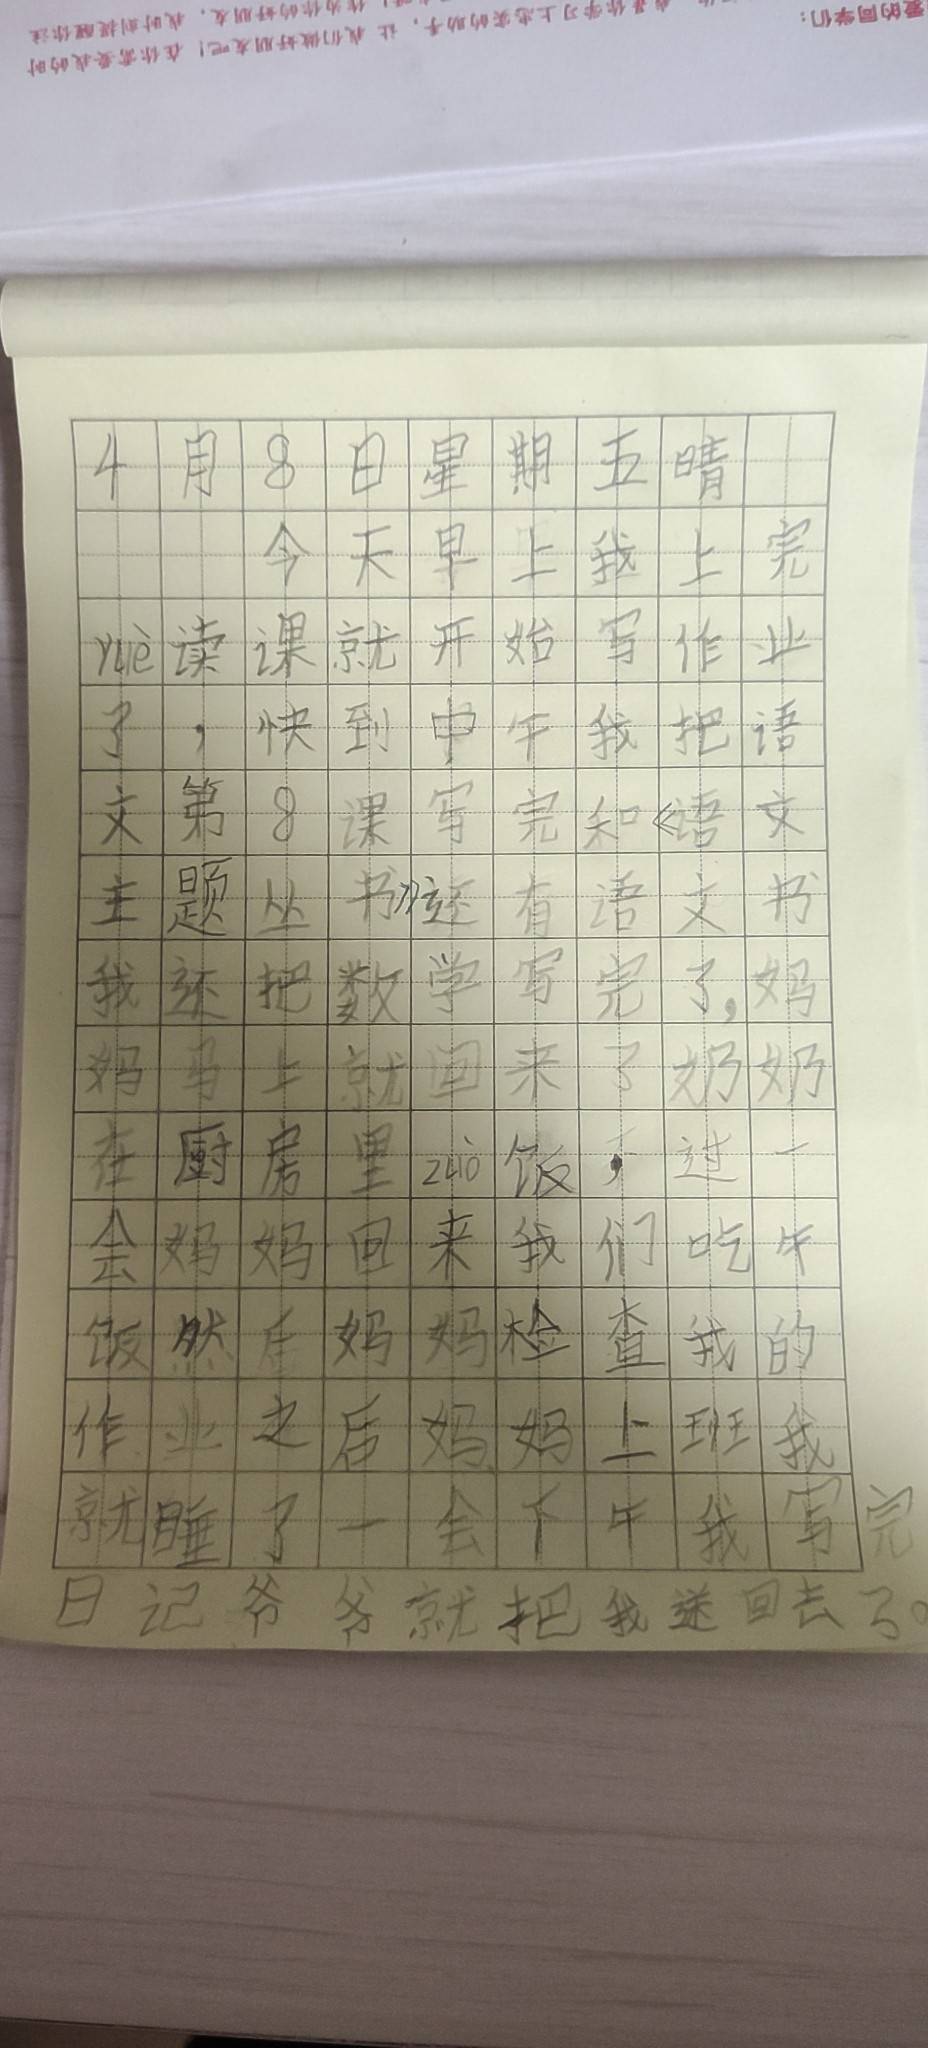 爱的同学们：
让我们做好朋友吧！在你需要我的时
4月8日星期五晴
今天早上我上完
yuè读课就开始写作业
了，快到中午我把语
文第8课写完和《语文
主题丛书》还有语文书
我还把数学写完了，妈
妈马上就回来了奶奶
在厨房里zuò饭，过一
会妈妈回来我们吃午
饭然后妈妈检查我的
作业之后妈妈上班我
就睡了一会下午我写完
日记爷爷就把我送回去了。